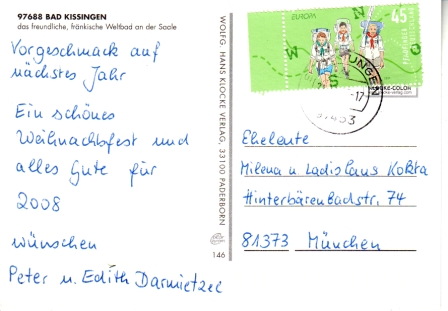 97688 BAD KISSINGEN
das freundliche, fränkische Weltbad an der Saale
Vorgeschmack auf
nächstes Jahr
Ein schönes
Weihnachtsfest und
alles Gute für
2008
wünschen
Peter u. Edith Darmietzel
WOLFG. HANS KLOCKE VERLAG, 33100 PADERBORN
146
EUROPA
45
Eheleute
Milena u Ladislaus Kobta
Hinterbärenbadstr. 74
81373 München